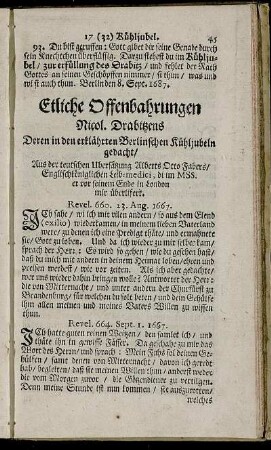 17 (32) Kühljubel. 45
93. Du bist geruffen: Gott gibet dir seine Genade durch
sein Knechtchen überflüssig. Darzu stehest du im Kühlju-
bel / zur erfüllung des Drabitz / und fehlet der Rath
Gottes an seinen Geschöpffen nimmer / sie thun / was und
wi si auch thun. Berlin den 8. Sept. 1687.
Etliche Offenbahrungen
Nicol. Drabitzens
Deren in den erklährten Berlinschen Kühljubeln
gedacht /
Aus der teutschen Ubersätzung Alberts Otto Fabers /
Englischköniglichen Leib-medici, di im MSS.
er vor seinem Ende in London
mir überlifert.
Revel. 660. 13. Aug. 1667.
Ich sahe / wi ich mir vilen andern / so aus dem Elend
(exilio) wiederkamen / in meinem lieben Vaterland
were / zu denen ich eine Predigt thäte / und ermahnete
sie / Gott zu loben. Und da ich wieder zu mir selber kam /
sprach der Herr: Es wird so gehen / wie du gesehen hast /
daß du mich mit andern in deinem Heimat loben / ehren und
preisen werdest / wie vor zeiten. Als ich aber gedachte /
wer uns wieder dahin bringen wolle? Antwortet der Herr:
die von Mitternacht / und unter andern der Chürfürst zu
Brandenburg / für welchen du sole beten / und dem Gehülfe
ihm allen meinen und des Batters Willen zu wissen
thun.
Revel. 664. Sept. 1. 1667.
Ich hatte guten reinen Weitzen / den samlet ich / und
thäte ihn in gewisse Fässer. Da geschahe zu mir das
Wort des Herrn / und sprach: Mein Fuchs sol deinen Ge-
hülfen / samt denen von Mitternacht / davon ich geredt
hab / begleiten / daß sie meinen Willen thun / anderst weder
die vom Morgen zuvor / die Götzendiener zu vertilgen.
Denn meine Stunde ist nun kommen / sie auszurotten /
welches